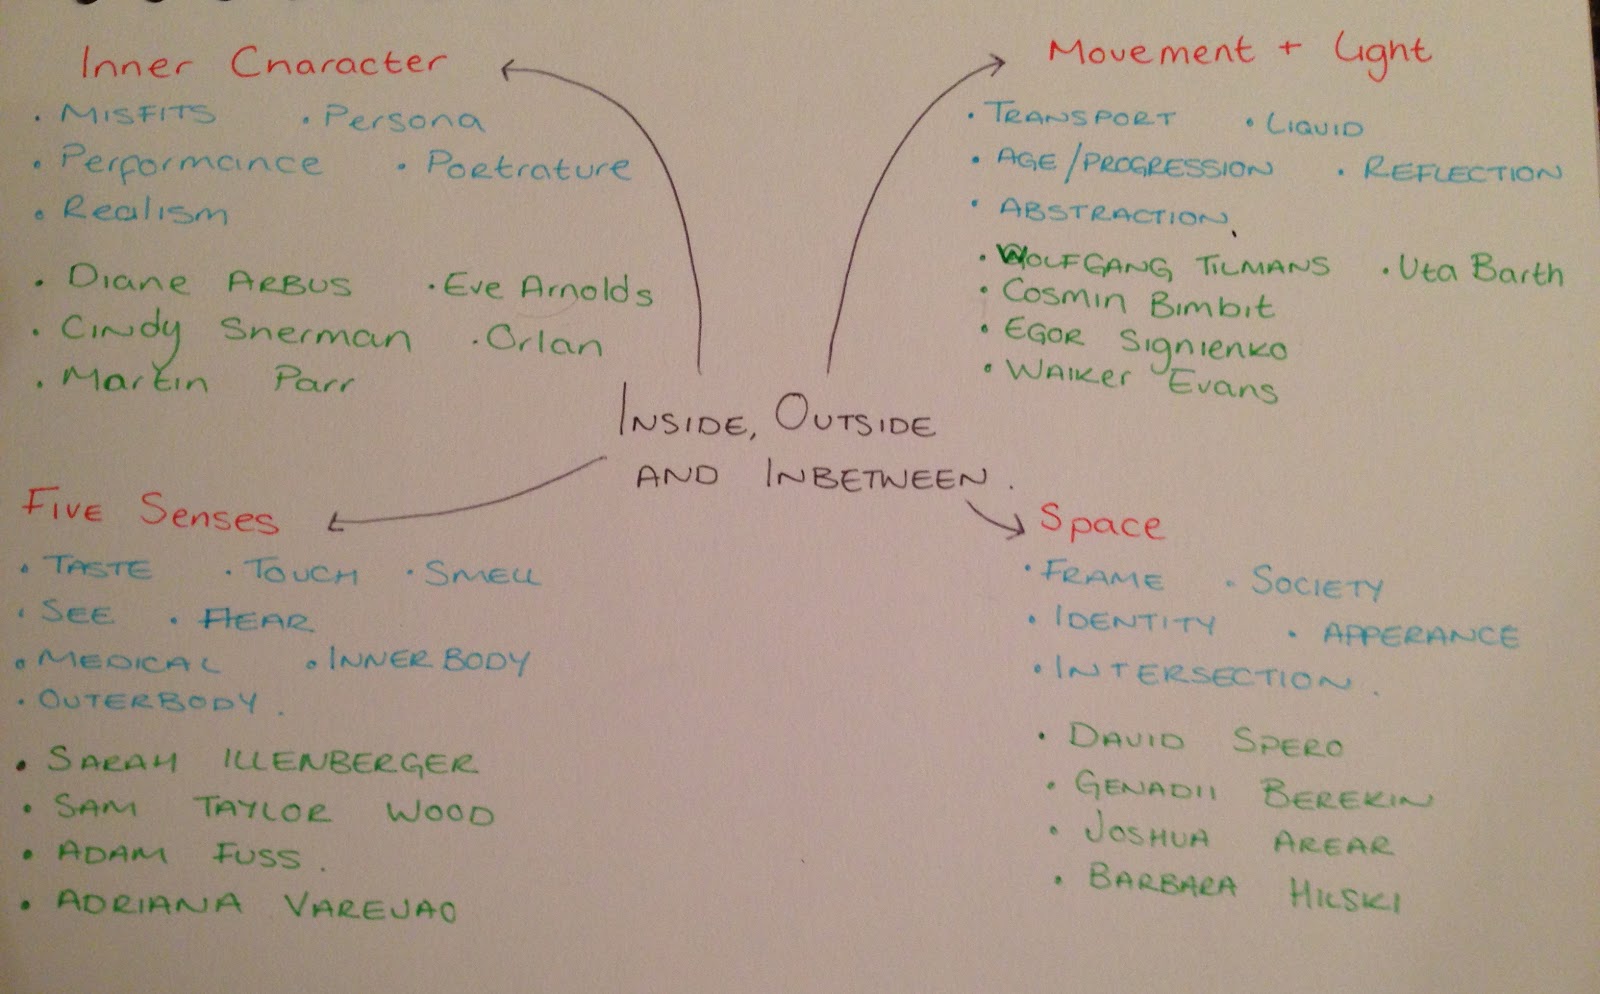 Inner Character
• MISFITS • Persona
• Performance • Portrature
• Realism
• Diane ARBUS • Eve Arnolds
• Cindy Sherman • Orlan
• Martin Parr
Movement + Light
• TRANSPORT • LIQUID
• AGE/PROGRESSION • REFLECTION
• ABSTRACTION.
• WOLFGANG TILMANS • Uta Barth
• Cosmin Bimbit
• EGOR Signienko
• Walker Evans
INSIDE, OUTSIDE
AND INBETWEEN.
Five Senses
• TASTE • TOUCH • SMELL
• SEE • HEAR
• MEDICAL • INNERBODY
• OUTERBODY.
• SARAH ILLENBERGER
• SAM TAYLOR WOOD
• ADAM FUSS.
• ADRIANA VAREJAO
Space
• FRAME • SOCIETY
• IDENTITY • APPERANCE
• INTERSECTION.
• DAVID SPERO
• GENADII BEREKIN
• JOSHUA AREAR
• BARBARA HILSKI